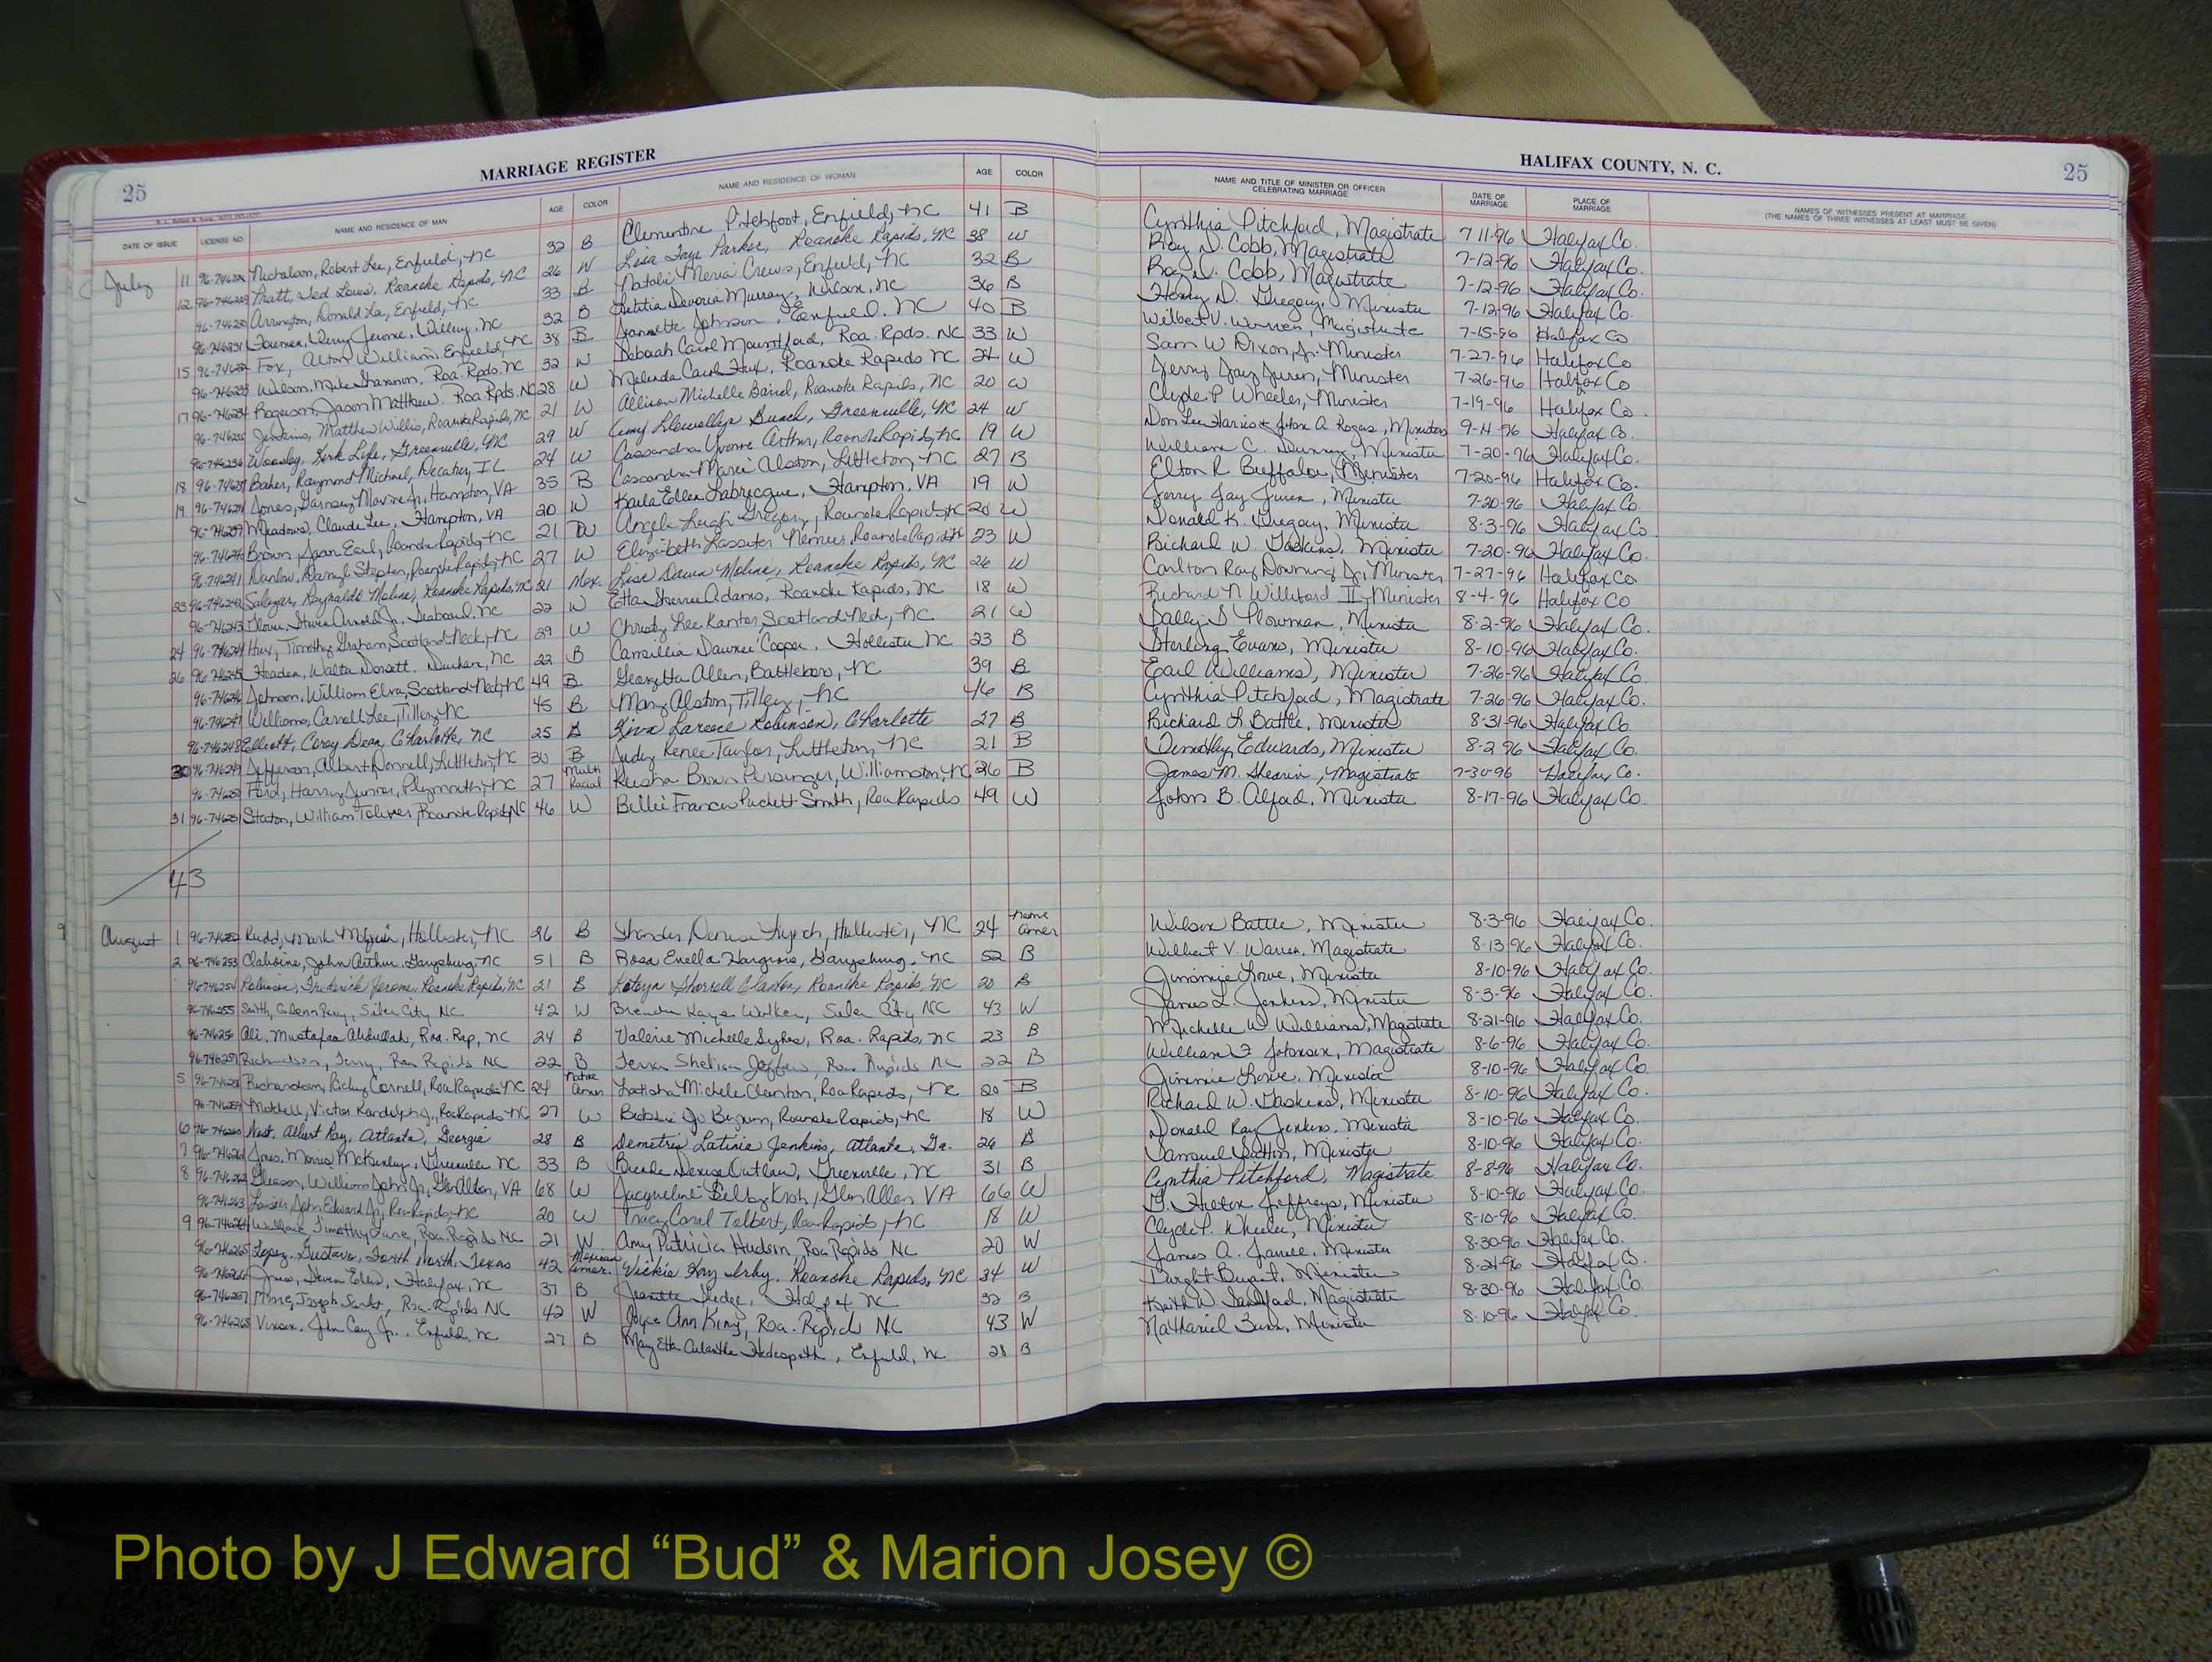 25 MARRIAGE REGISTER HALIFAX COUNTY, N. C. 25
DATE OF ISSUE LICENSE NO. NAME AND RESIDENCE OF MAN AGE COLOR NAME AND RESIDENCE OF WOMAN AGE COLOR NAME AND TITLE OF MINISTER OR OFFICER CELEBRATING MARRIAGE DATE OF MARRIAGE PLACE OF MARRIAGE NAMES OF WITNESSES PRESENT AT MARRIAGE (THE NAMES OF THREE WITNESSES AT LEAST MUST BE GIVEN)
July 11 Nicholson, Robert Lee, Enfield, NC 32 B Clementine Pitchfoot, Enfield, NC 41 B Cynthia Pitchford, Magistrate 7-11-96 Halifax Co.
12 96-746229 Pratt, Ted Louis, Roanoke Rapids, NC 26 W Lisa Faye Parker, Roanoke Rapids, NC 38 W Roy D. Cobb, Magistrate 7-12-96 Halifax Co.
96-746230 Arrington, Donald Lee, Enfield, NC 33 B Natalie Crews, Enfield, NC 32 B Roy D. Cobb, Magistrate 7-12-96 Halifax Co.
96-746231 Jerome, NC 32 B Letitia Devoria Murray, NC 36 B Henry D. Gregory, Minister 7-12-96 Halifax Co.
15 96-746232 Fox, Alton William, Enfield, NC 38 B Jannette Johnson, Enfield, NC 40 B Wilbert V. Warren, Magistrate 7-15-96 Halifax Co
96-746233 Wilson, Mike Shannon, Roa. Rpds. NC 32 W Deborah Carol Mountford, Roa. Rpds. NC 33 W Sam W Dixon, Jr. Minister 7-27-96 Halifax Co
17 96-746234 Rogerson, Jason Matthew, Roa. Rpds. NC 28 W Melinda Carol Hux, Roanoke Rapids NC 24 W Jerry Jay Juren, Minister 7-26-96 Halifax Co
96-746235 Jenkins, Matthew Willis, Roanoke Rapids, NC 21 W Allison Michelle Baird, Roanoke Rapids, NC 20 W Clyde P Wheeler, Minister 7-19-96 Halifax Co.
96-746236 Woolsey, Kirk Lyle, Greenville, NC 29 W Amy Llewellyn Bunch, Greenville, NC 24 W Don Lee Harris & John A Rogers, Ministers Halifax Co.
18 96-746237 Baker, Raymond Michael, Decatur, IL 24 W Cassandra Yvonne Arthur, Roanoke Rapids, NC 19 W William C. Minister 7-20-96 Halifax Co.
19 96-746238 Jones, Jr, Hampton, VA 35 B Cassandra Marie Alston, Littleton, NC 27 B Elton R Buffaloe, Minister 7-20-96 Halifax Co.
96-746239 Meadows, Claude Lee, Hampton, VA 20 W Karla Ellen Labrecque, Hampton, VA 19 W Jerry Jay Juren, Minister 7-20-96 Halifax Co.
96-746240 Brown, Jason Earl, Roanoke Rapids, NC 21 W Angela Leigh Gregory, Roanoke Rapids, NC 20 W Donald K. Gregory, Minister 8-3-96 Halifax Co
96-746241 Danlow, Darryl Stephen, Roanoke Rapids, NC 27 W Elizabeth Lassiter Roanoke Rapids NC 23 W Richard W. Gaskins, Minister 7-20-96 Halifax Co.
23 96-746242 Salazar, Reynaldo Molina, Roanoke Rapids, NC 21 Mex. Lisa Dawn Roanoke Rapids, NC 26 W Carlton Ray Downing Jr, Minister 7-27-96 Halifax Co.
96-746243 Glover, Arnold Jr., Seaboard, NC 22 W Etta Sherrie Adams, Roanoke Rapids, NC 18 W Richard N Williford II, Minister 8-4-96 Halifax Co
24 96-746244 Hux, Timothy Graham, Scotland Neck, NC 29 W Christy Lee Kanter, Scotland Neck, NC 21 W Sally S Plowman, Minister 8-2-96 Halifax Co.
26 96-746245 Headen, Walter Dorsett, Durham, NC 22 B Camillia Dawnee Cooper, Hollister NC 23 B Sterling Evans, Minister 8-10-96 Halifax Co.
96-746246 Johnson, William Elva, Scotland Neck, NC 49 B Georgetta Allen, Battleboro, NC 39 B Earl Williams, Minister 7-26-96 Halifax Co.
96-746247 Williams, Carroll Lee, Tillery, NC 45 B Mary Alston, Tillery, NC 46 B Cynthia Pitchford, Magistrate 7-26-96 Halifax Co.
96-746248 Elliott, Corey Dean, Charlotte, NC 25 B Robinson, Charlotte 27 B Richard L Battle, Minister 8-31-96 Halifax Co
30 96-746249 Jefferson, Albert Donnell, Littleton, NC 30 B Judy Renee Taylor, Littleton, NC 21 B Timothy Edwards, Minister 8-2-96 Halifax Co.
96-746250 Ford, Harry Junior, Plymouth, NC 27 Multi Racial Keisha Brown Persinger, Williamston, NC 26 B James M. Shearin, Magistrate 7-30-96 Halifax Co.
31 96-74625 Staton, William Toliver, Roanoke Rapids, NC 46 W Billie Frances Puckett Smith, Roa Rapids 49 W John B. Alford, Minister 8-17-96 Halifax Co.
43
August 1 96-746252 Rudd, Mark Hollister, NC 26 B Shonder Denise Lynch, Hollister, NC 24 Native Amer Wilson Battle, Minister 8-3-96 Halifax Co.
2 96-746253 Claiborne, John Arthur, Garysburg, NC 51 B Rosa Enella Hargrove, Garysburg, NC 52 B Wilbert V. Warren, Magistrate 8-13-96 Halifax Co.
96-746254 Robinson, Frederick Jerome, Roanoke Rapids, NC 21 B Katryn Sherrell Clanton, Roanoke Rapids, NC 20 B Jimmie Lowe, Minister 8-10-96 Halifax Co.
96-746255 Smith, Glenn Ray, Siler City NC 42 W Brenda Kaye Walker, Siler City, NC 43 W James L. Jenkins, Minister 8-3-96 Halifax Co.
96-746256 Ali, Mustafaa Abdullah, Roa. Rap, NC 24 B Valerie Michelle Sykes, Roa. Rapids, NC 23 B Michelle W Williams, Magistrate 8-21-96 Halifax Co.
96-746257 Richardson, Terry, Roa Rapids NC 22 B Roa Rapids NC 22 B William F Johnson, Magistrate 8-6-96 Halifax Co.
5 96-746258 Richardson, Ricky Cornell, Roa Rapids, NC 24 Native Amer Latisha Michele Clanton, Roa Rapids, NC 20 B Jimmie Lowe, Minister 8-10-96 Halifax Co.
96-746259 Mitchell, Victor Randolph Jr, Roa Rapids NC 27 W Bobbie Jo Bynum, Roanoke Rapids, NC 18 W Richard W. Gaskins, Minister 8-10-96 Halifax Co.
6 96-746260 Albert Ray, Atlanta, Georgia 28 B Demetris Latinia Jenkins, Atlanta, Ga. 26 B Donald Ray Jenkins, Minister 8-10-96 Halifax Co.
7 96-746261 Jones, Morris McKinley, Greenville NC 33 B Denise Outlaw, Greenville, NC 31 B Samuel Sutton, Minister 8-10-96 Halifax Co.
8 96-746262 Gleason, William John Jr, Glen Allen, VA 68 W Jacqueline Selby Glen Allen VA 66 W Cynthia Pitchford, Magistrate 8-8-96 Halifax Co.
96-746263 John Edward Jr, Roa-Rapids, NC 20 W Tracy Carol Talbert, Roa-Rapids, NC 18 W Jeffreys, Minister 8-10-96 Halifax Co.
9 96-746264 Wallace, Timothy Roa. Rapids NC 21 W Amy Patricia Hudson, Roa Rapids NC 20 W Clyde P. Wheeler, Minister 8-10-96 Halifax Co.
96-746265 Lopez, Gustavo, Forth Worth, Texas 42 Mexican Amer. Vickie Kay Irby, Roanoke Rapids, NC 34 W James A. Minister 8-30-96 Halifax Co.
96-746266 Halifax, NC 37 B Jeanette Hedge, Halifax NC 32 B Dwight Bryant, Minister 8-24-96 Halifax Co.
96-746267 Joseph Roa. Rapids NC 42 W Joyce Ann King, Roa. Rapids NC 43 W Keith W. Magistrate 8-30-96 Halifax Co.
96-746268 Vinson, John Jr., Enfield, NC 27 B Mary Etta Hedgepeth, Enfield, NC 28 B Nathaniel Minister 8-10-96 Halifax Co.
Photo by J Edward “Bud” & Marion Josey ©